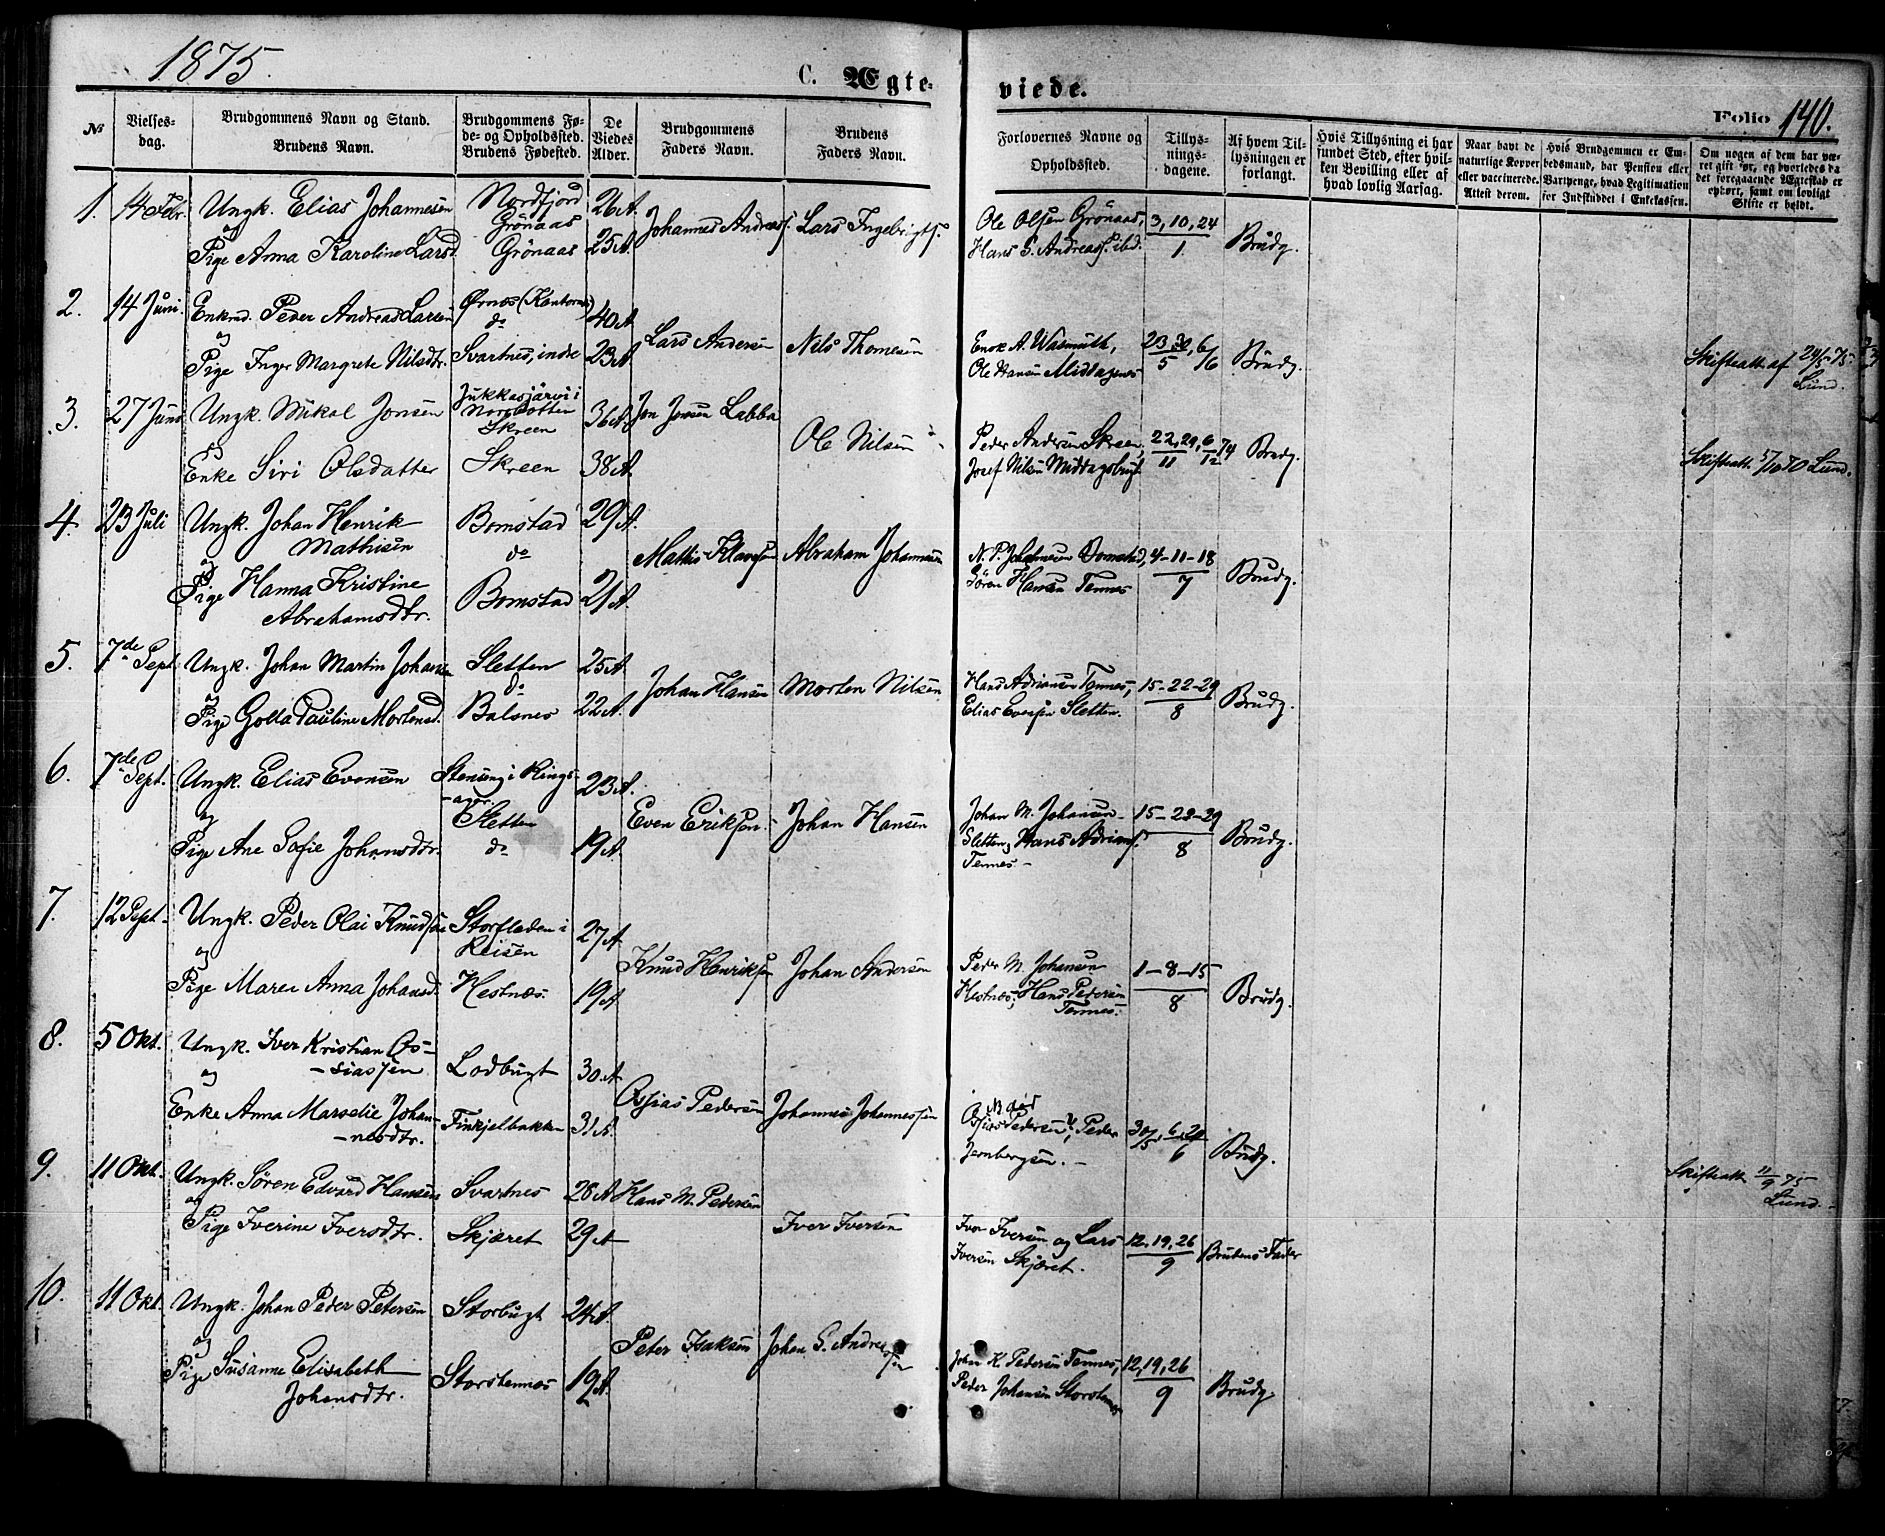 1875.
C. Ægteviede.
Folio 140.
No
Vielsesdag.
Brudgommens Navn og Stand.
Brudens Navn.
Brudgommens Føde- og Opholdssted.
Brudens Fødested.
De Viedes Alder.
Brudgommens Faders Navn.
Brudens Faders Navn.
Forlovernes Navne og Opholdssted.
Tillysningsdagene.
Af hvem Tillysningen er forlangt.
Hvis Tillysning ei har fundet Sted, efter hvilken Bevilling eller af hvad lovlig Aarsag.
Naar havt de naturlige Kopper eller vaccinerede. Attest derom.
Hvis Brudgommen er Embedsmand, har Pension eller Vartpenge, hvad Legitimation for Indskuddet i Enkekassen.
Om nogen af dem har været gift før, og hvorledes da det foregaaende Ægteskab er ophørt, samt om lovligt Skifte er holdt.
1. 14 Febr. Ungk. Elias Johannesen Nordfjord Grönaas 26 A. Johannes Andreasſ. Lars Ingebrigtſ. Ole Olsen Grönaas, 3, 10, 24 Brudg.
og
Pige Anna Karoline Larsd. Grönaas 25 A. Hans G. Andreasſ. ibd. 1
2. 14 Juni. Enkmd. Peder Andreas Larsen Ørnes (Kantornes) do 40 A. Lars Andersen Nils Thomesen Enok A. Wasmuth, 23, 30, 6 Brudg. Skifteatt. af 24/5 75
og
Pige Inger Margrete Nilsdtr. Svartnes, indre 23 A. Ole Hansen Middagsnes 5 /6 Lund.
3. 27 Juni Ungk. Mikal Jonsen Jukkasjärvi i Norrbotten Skreen 36 A. Jon Jonsen Labba Ole Nilsen Peder Andersen Skreen, 22, 29, 6 74 Brudg. Skifteatt. 5/10 70 Lund.
og
Enke Siri Olsdatter Skreen 38 A. Josef Nilsen Middagsbugt 11 12
4. 23 Juli Ungk. Johan Henrik Mathisen Bomstad do 29 A. Mathis Klausen Abraham Johannesen N. P. Johannesen Bomstad, 4-11-18 Brudg.
og
Pige Hanna Kristine Abrahamsdtr. Bomstad 21 A. Sören Hansen Tennes 7
5. 7de Sept. Ungk. Johan Martin Johansen Sletten do 25 A. Johan Hansen Morten Nilsen Hans Adriansen Tennes, 15-22-29 Brudg.
og
Pige Golla Pauline Mortensd. Balsnes 22 A. Elias Evensen Sletten. 8
6. 7de Sept. Ungk. Elias Evensen Stenseng i Ringsager. Sletten 23 A. Even Eriksen Johan Hansen Johan M. Johansen 15-22-29 Brudg.
og
Pige Ane Sofie Johansdtr. do 19 A. Sletten, Hans Adriansſ. Tennes. 8
7. 12 Sept. Ungk. Peder Olai Knudsen Storfladen i Reisen 27 A. Knud Henriksen Johan Andersen Peder M. Johansen 1-8-15 Brudg.
og
Pige Maren Anna Johansd. Hestnæs. 19 A. Hestnæs, Hans Pedersen Tennes. 8
8. 5 Okt. Ungk. Iver Kristian Ossiassen Lodbugt 30 A. Ossias Pedersen Johannes Johannessen Ossias Pedersen, Peder 30/5, 6, 20 Brudg. Skifteatt. 11/9 75
og
Enke Anna Marselie Johannesdtr. Finkjelbakken 31 A. Jernbergsen. 6 Lund.
9. 11 Okt. Ungk. Sören Edvard Hansen Svartnes 28 A. Hans M. Pedersen Iver Iversen Iver Iversen og Lars 12, 19, 26 Brudens Fader
og
Pige Iverine Iversdtr. Skjæret 29 A. Iversen Skjæret. 9
10. 11 Okt. Ungk. Johan Peder Petersen Storbugt 24 A. Peter Isaksen Johan G. Andreassen Johan K. Pedersen Tennes, 12, 19, 26 Brudg.
og
Pige Susanne Elisabeth Johansdtr. Storstennes 19 A. Peder Johansen Storstennes 9